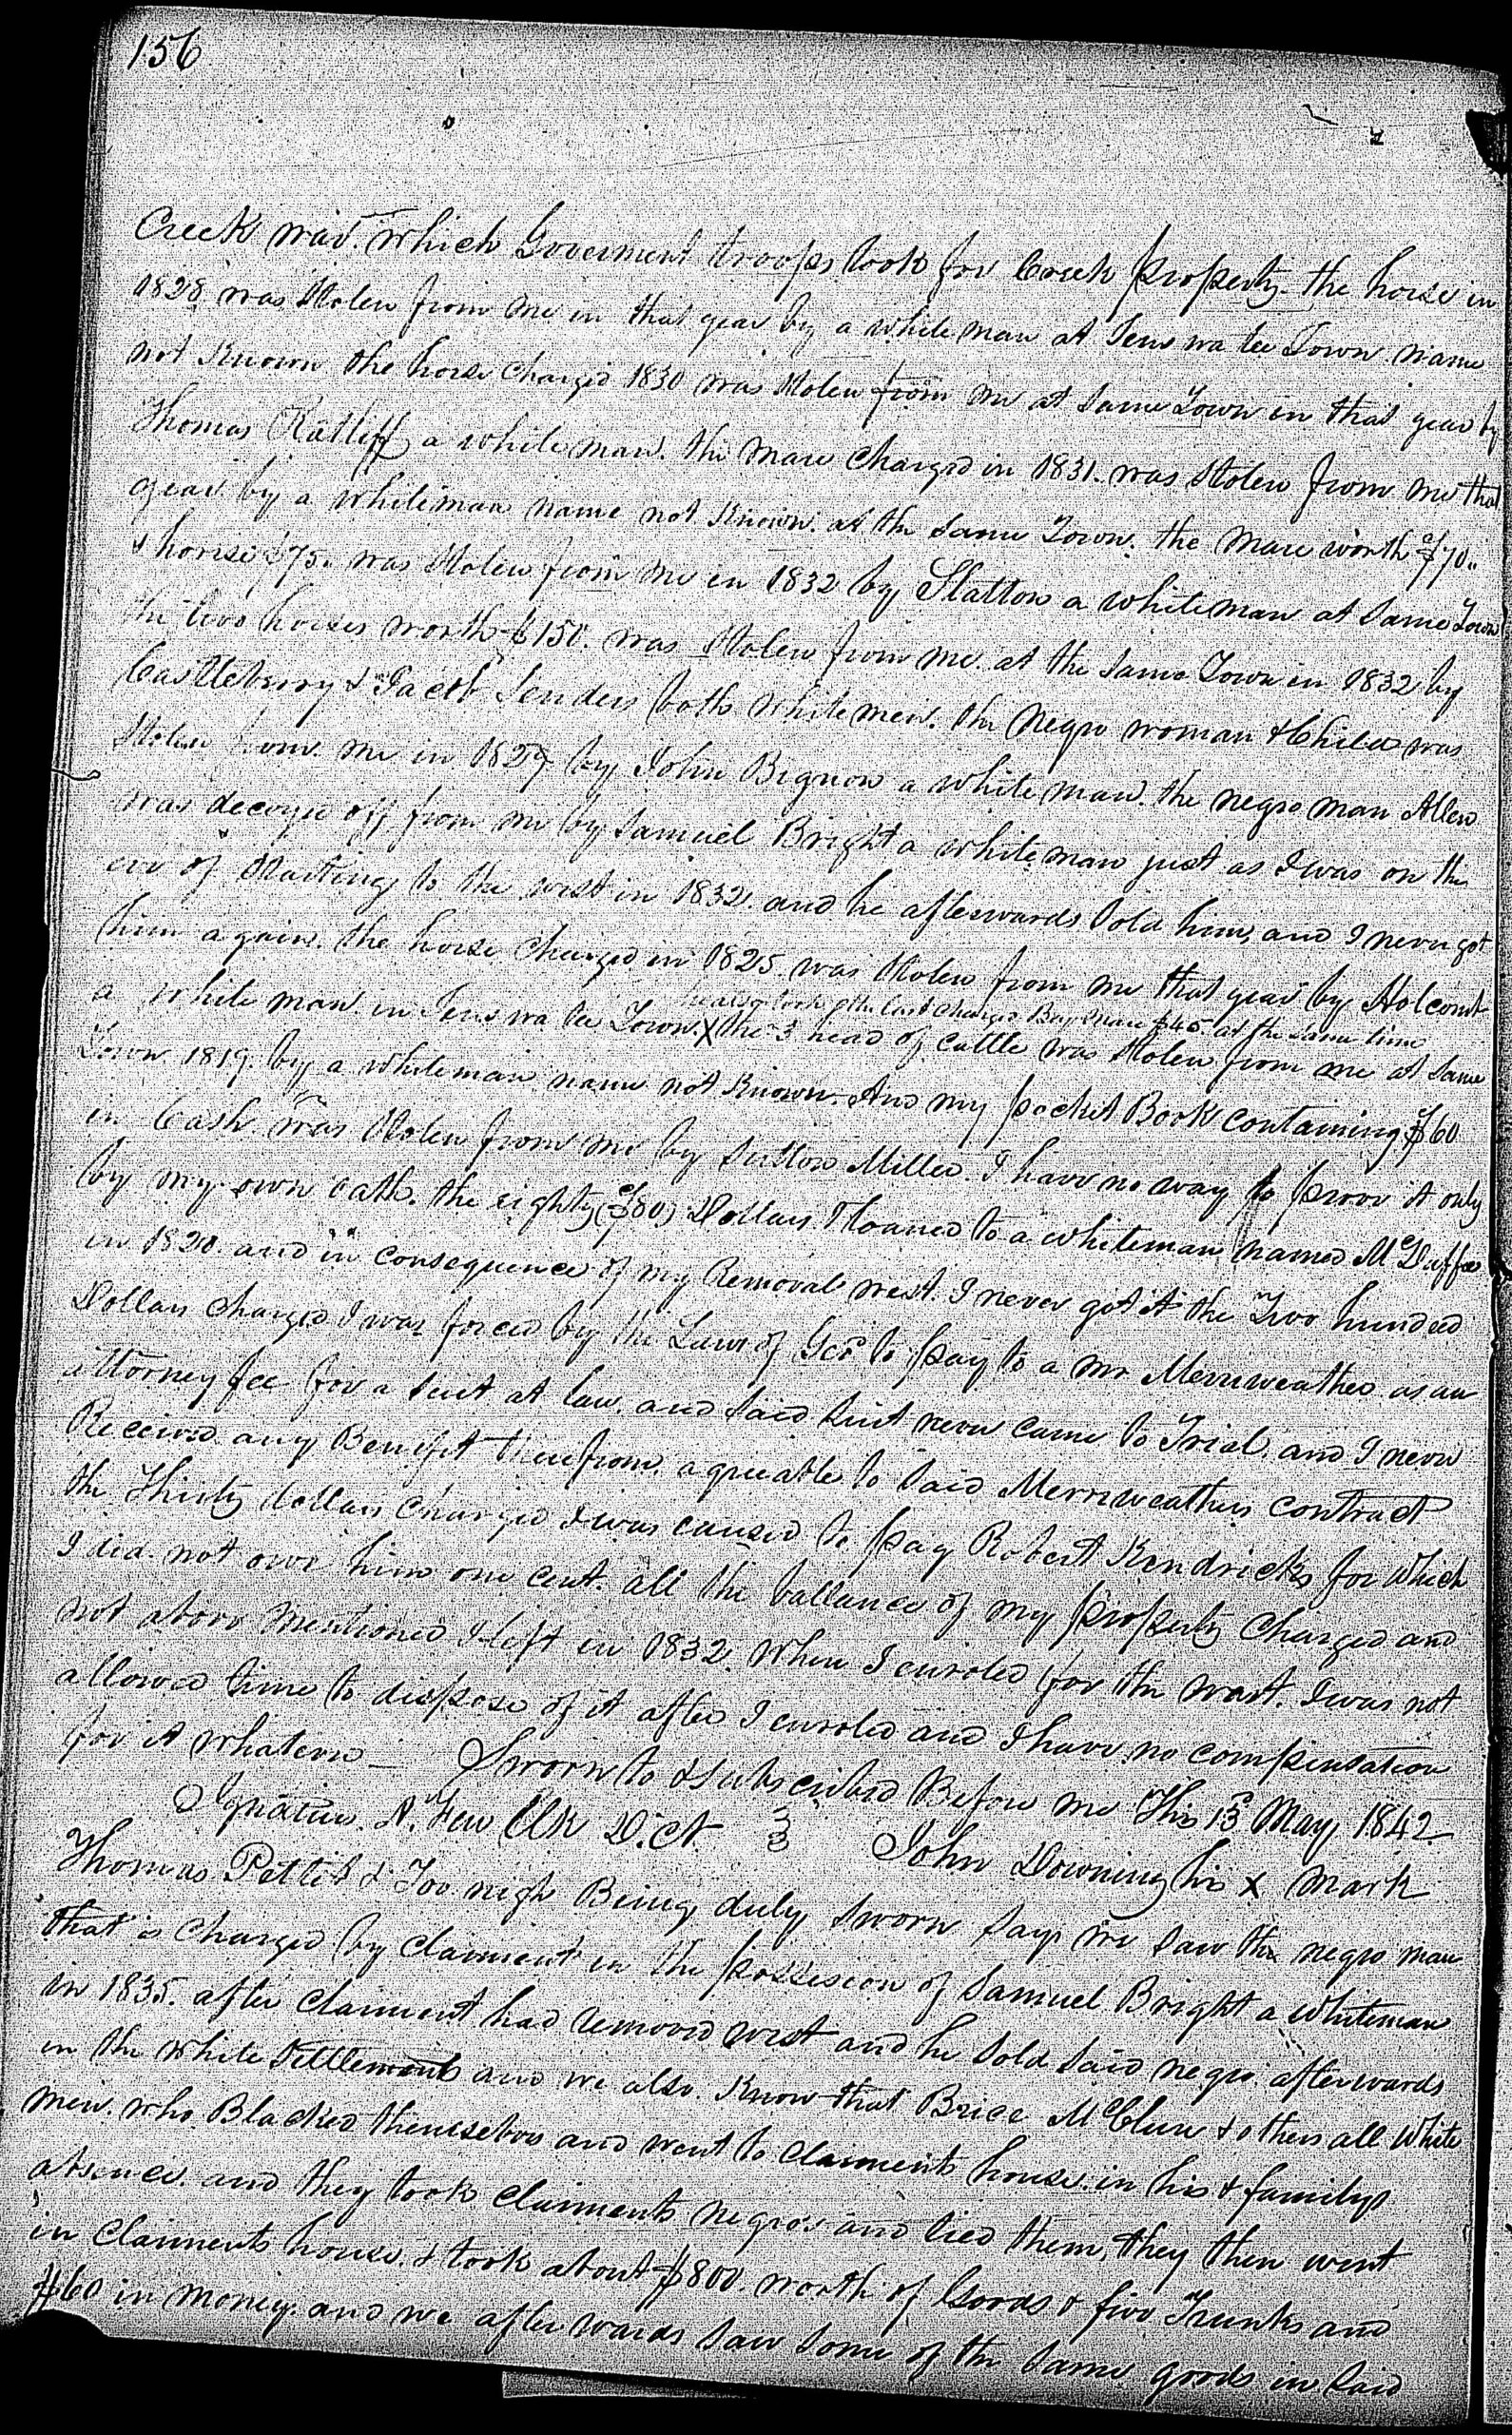 156
Creek war. which Goverment troops took for Creek property. the horse in
1828 was Stolen from me in that year by a white man at Tens wa tee Town name
not Known the horse Charged 1830 was Stolen from me at Same Town in that year by
Thomas Ratliff a whiteman. the mare charged in 1831. was Stolen from me that
year by a whiteman name not Known. at the Same Town. the mare worth $70..
& horse $75. was Stolen from me in 1832 by Statton a whiteman at Same Town
the two horses worth $150. was Stolen from me at the Same Town in 1832 by
Castleberry & Jacob Senders both whitemen. the Negro woman & Child was
Stolen from me in 1829 by John Bignow a white man. the negro man Allen
was decoyed off from me by Samuel Bright a whiteman just as I was on the
eve of Starting to the west in 1832 and he afterwards Sold him, and I never got
him again. the horse Charged in 1825 was Stolen from me that year by Holcomb
he also took the last charged Bay Mare $45. at the same time
a white man in Tens wa tee Town. X the 3 head of cattle was Stolen from me at Same
Town 1819. by a whiteman name not Known. And my pocket Book containing $60
in Cash was Stolen from me by Sutton Miller. I have no way to proov it only
by my own oath. the eighty ($80.) Dollars I loaned to a whiteman named McDuffee
in 1820. and in consequence of my Removal west. I never got it the Two hundred
Dollars charged I was forced by the Laws of Geo. to pay to a Mr Merriweather as an
attorney fee for a Suit at law. and Said Suit never came to Trial. and I never
Received any Benifit therefrom. agreeable to Said Merriweathers contract
the Thirty dollars Charged I was caused to pay Robert Kendricks for which
I did not owe him one cent. all the ballance of my property Charged and
not above mentioned I left in 1832. when I enroled for the west. I was not
allowed time to dispose of it after I enroled and I have no compensation
for it whatever — Sworn to & subscribed Before me This 13 May 1842
Ignatius. A. Few Clk D. Ct } John Downing his X mark
Thomas Pettit & Too nigh Being duly Sworn Says we Saw the negro man
that is Charged by claiment in the possession of Samuel Bright a whiteman
in 1835. after claiment had removed west and he Sold Said negro afterwards
in the white Settlements and we also Know that Brice McClure & others all white
men. who Blacked themselves and went to claiments house. in his & familys
absence. and they took claiments negros and tied them, they then went
in claiments house, & took about $800. worth of Goods & five Trunks and
$60 in money. and we afterwards Saw Some of the Same goods in Said